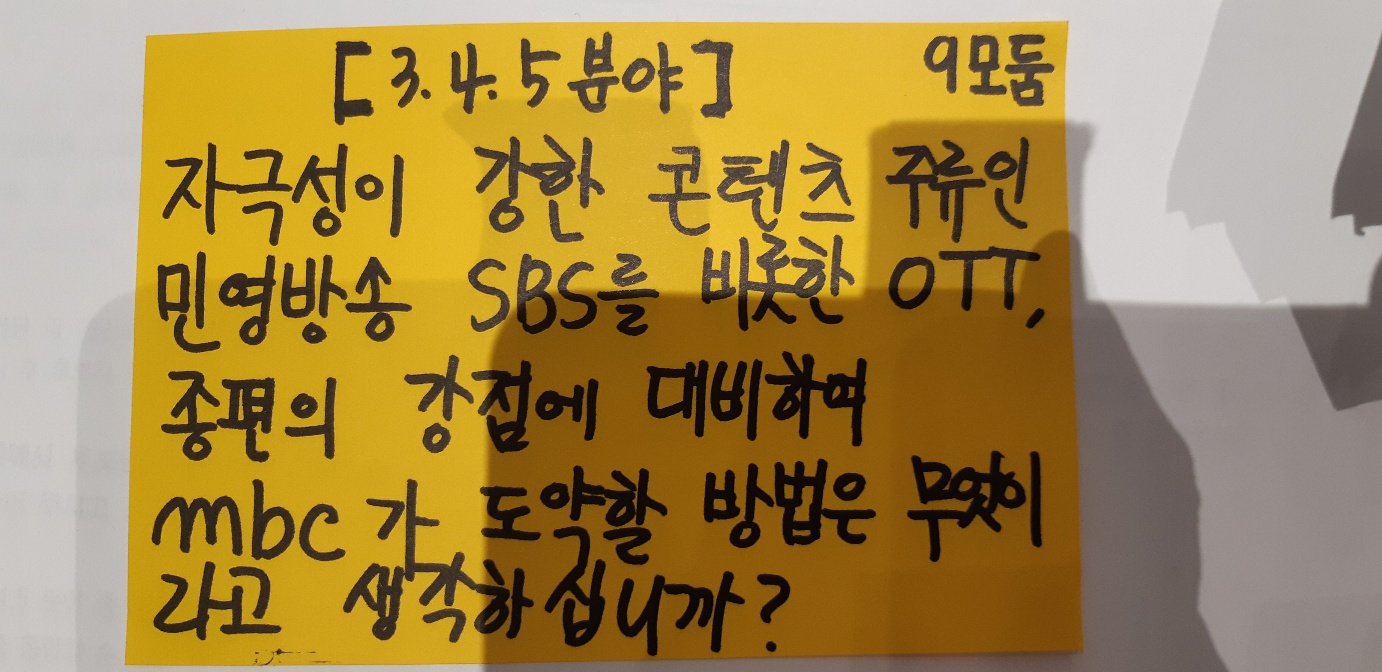 [3.4.5분야] 9모둠
자극성이 강한 콘텐츠 주류인
민영방송 SBS를 비롯한 OTT,
종편의 강점에 대비하여
mbc가 도약할 방법은 무엇이
라고 생각하십니까?